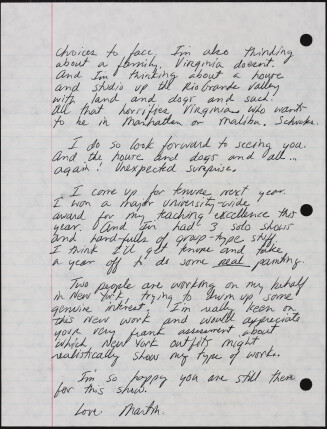 choices to face. I'm also thinking
about a family. Virginia doesn't.
And I'm thinking about a house
and studio up the Rio Grande Valley
with land and dogs and such.
All that horrifies Virginia who wants
to be in Manhattan or Malibu.
I do so look forward to seeing you.
And the house and dogs and all...
again! Unexpected surprise.
I come up for tenure next year.
I won a major University-wide
award for my teaching excellence this
year. And I've had 3 solo shows
and hand-fulls of group-type stuff
I think I'll get tenure and take
a year off to do some real painting.
Two people are working on my behalf
in New York, trying to swim up some
genuine interest. I'm really keen on
this new work and would appreciate
your very frank assessment about
which New York outfits might
realistically show my type of work.
I'm so happy you are still there
for this show.
Love Martin.